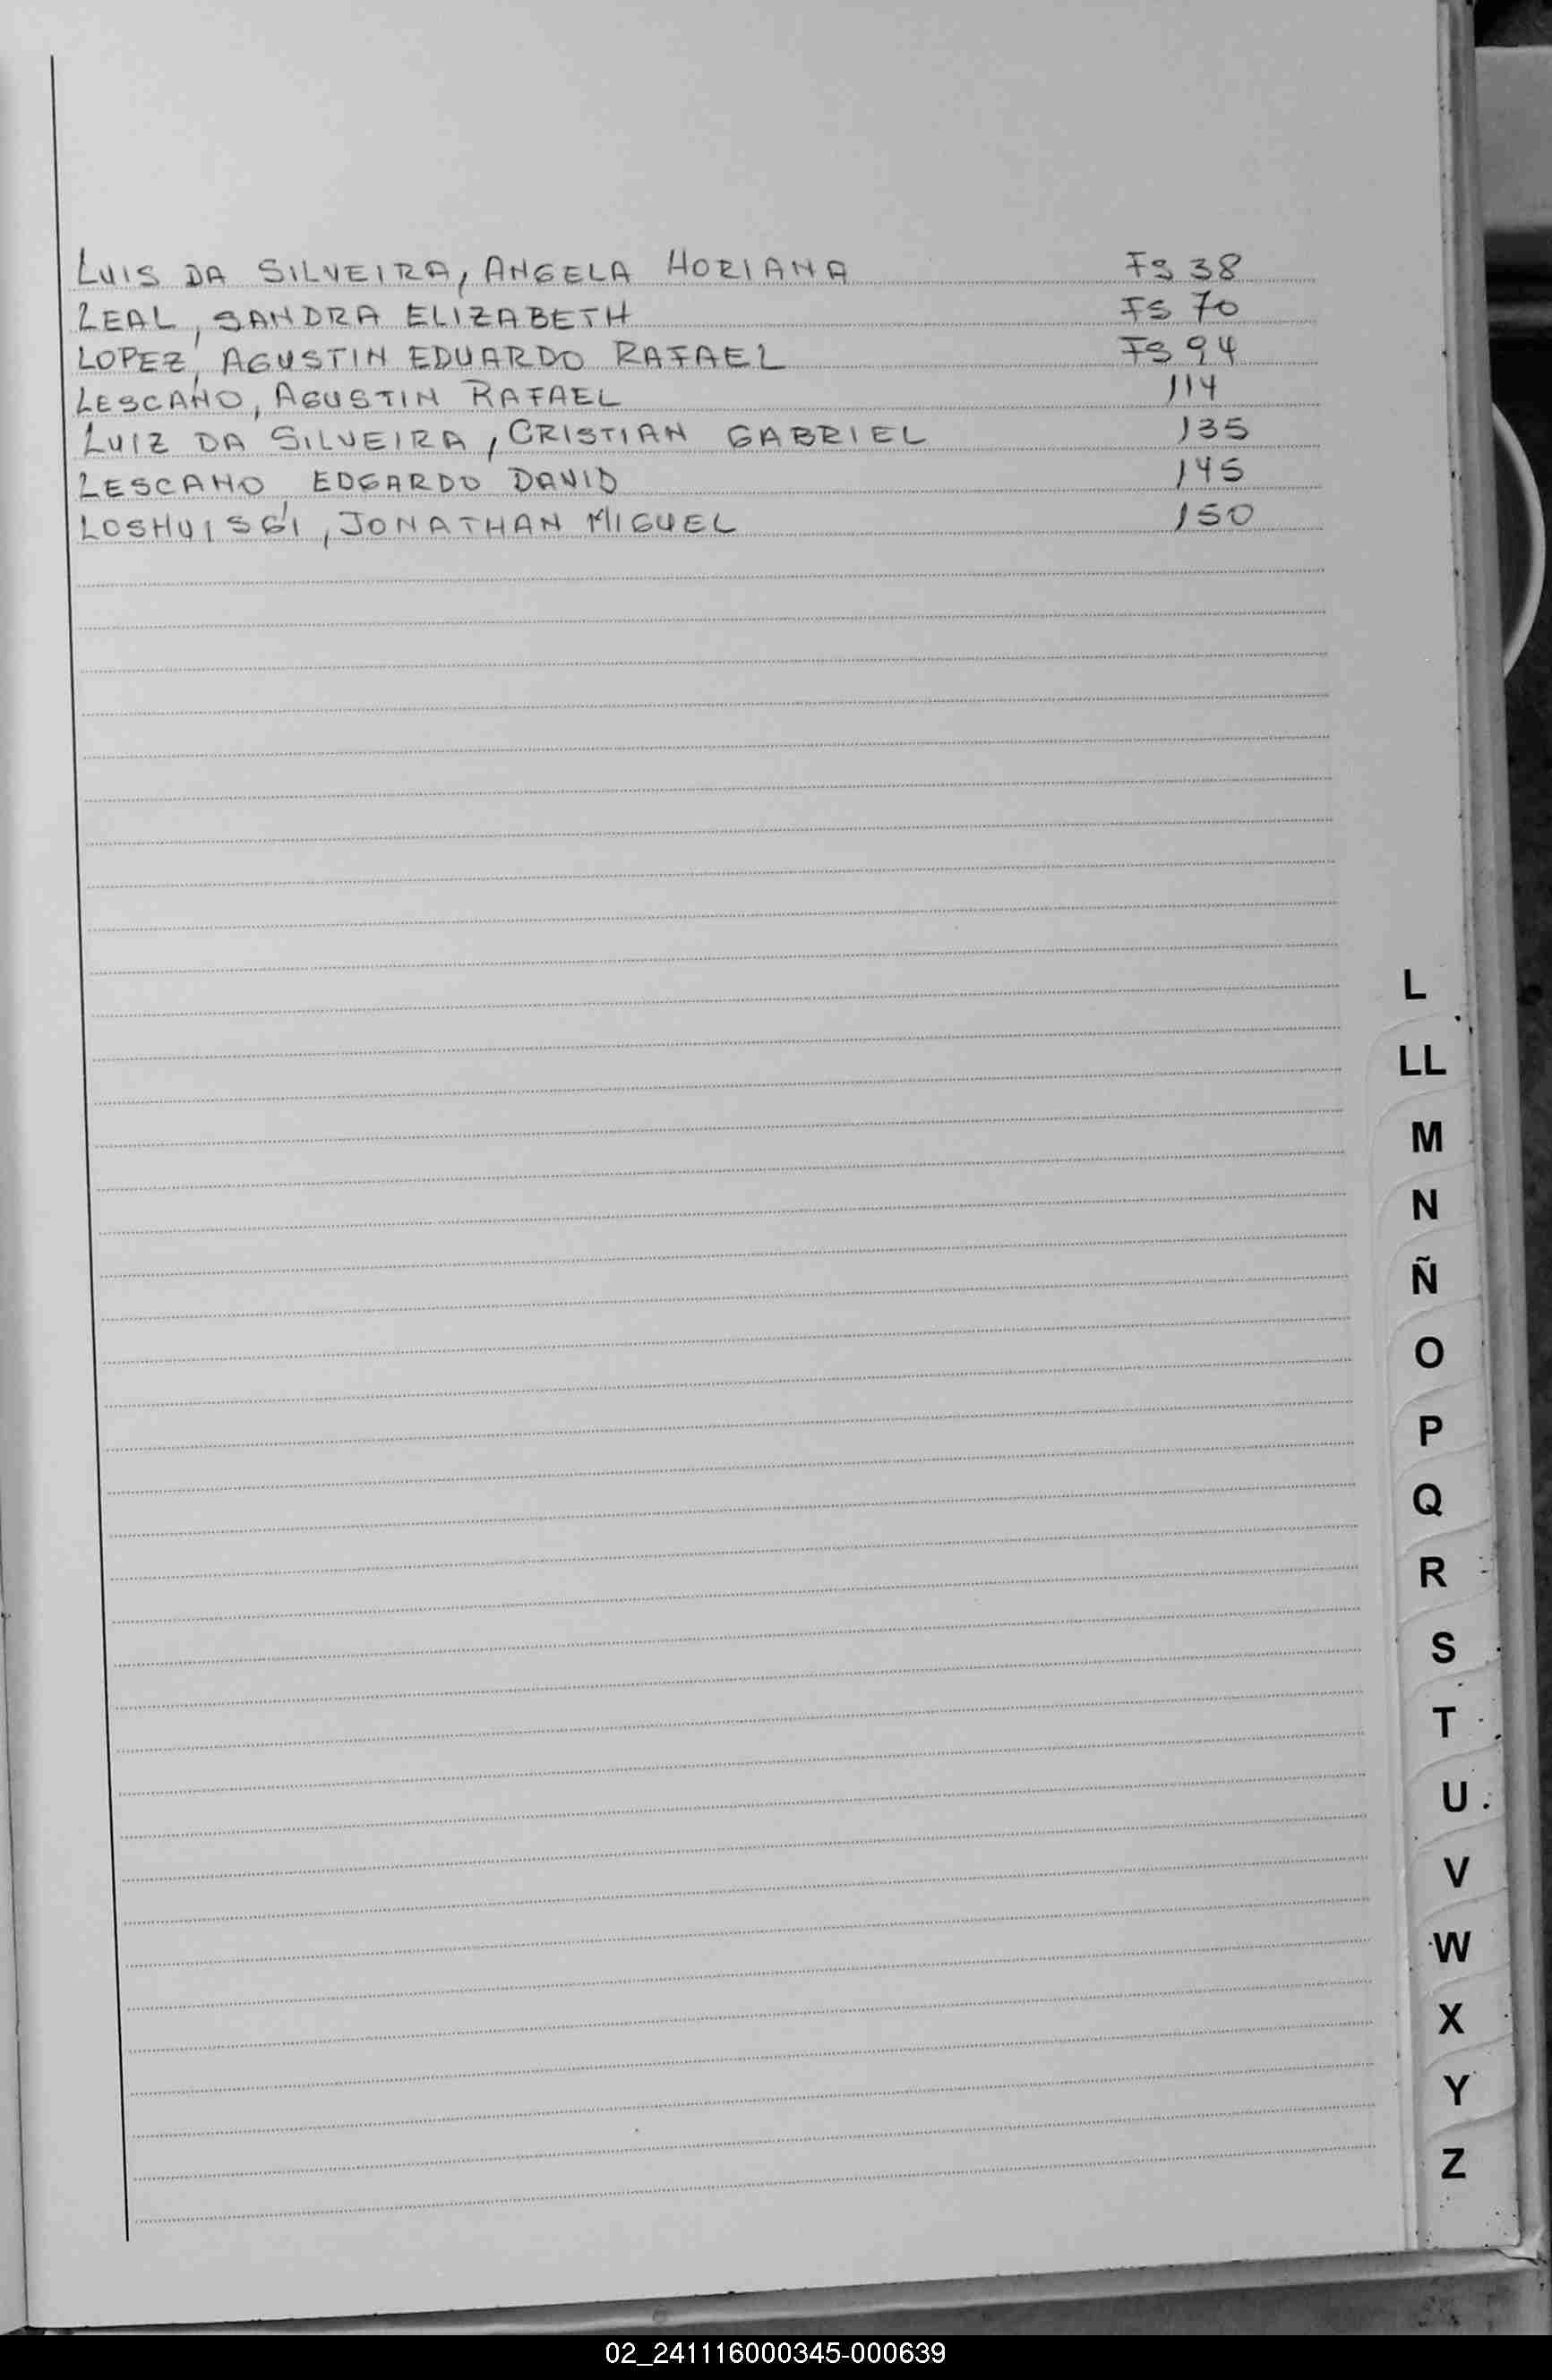 LUIS DA SILVEIRA, ANGELA NORIANA FS 38
LEAL, SANDRA ELIZABETH FS 70
LOPEZ, AGUSTIN EDUARDO RAFAEL FS 94
LESCANO, AGUSTIN RAFAEL 114
LUIZ DA SILVEIRA, CRISTIAN GABRIEL 135
LESCANO, EDGARDO DAVID 145
JONATHAN MIGUEL 150
L
LL
M
N
Ñ
O
P
Q
R
S
T
U
V
W
X
Y
Z
02_241116000345-000639